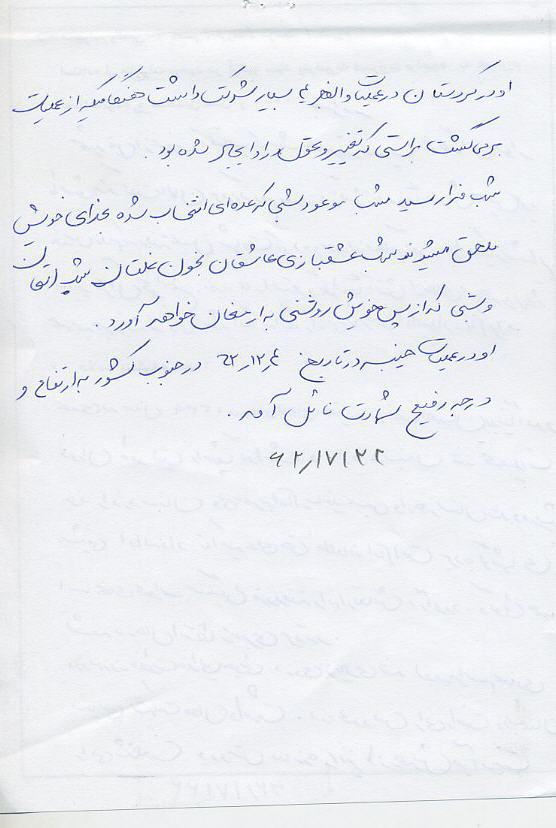 او در کردستان در عملیات والفجر ۴ بسیار شرکت داشت هنگامیکه از عملیات
برمی‌گشت براستی که تغییر و تحول در او ایجاد شده بود.
شب فرا رسید شب موعود شبی که عده‌ای انتخاب شده بخدای خویش
ملحق میشوند شب عشقبازی عاشقان بخون غلتان شب
و شبی که از پس خویش روشنی به ارمغان خواهد آورد.
او در عملیات خیبر در تاریخ ۶۲٫۱۲٫۴ در جنوب کشور به ارتفاع و
درجه رفیع شهادت نائل آمد.
۶۲/۱۷۱۲۲